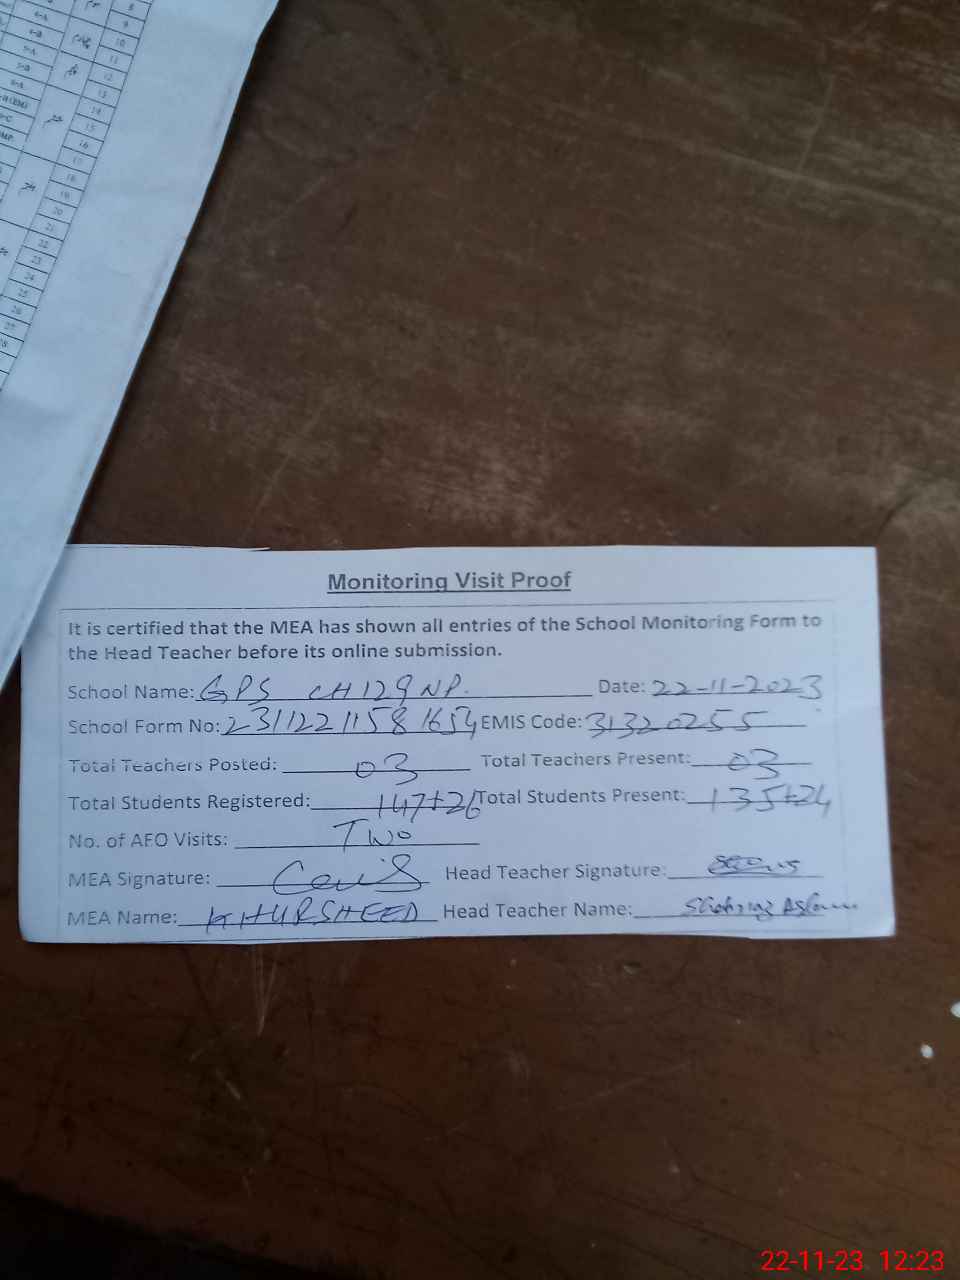 8
9
10
11
12
13
14
15
16
17
18
19
20
21
22
23
24
25
26
27
Monitoring Visit Proof
It is certified that the MEA has shown all entries of the School Monitoring Form to
the Head Teacher before its online submission.
School Name: GPS CH 129 NP. Date: 22-11-2023
School Form No: 2311221158 1654 EMIS Code: 31320255
Total Teachers Posted: 03 Total Teachers Present: 03
Total Students Registered: 147+26 Total Students Present: 135+24
No. of AEO Visits: Two
MEA Signature: Head Teacher Signature:
MEA Name: KHURSHEED Head Teacher Name:
22-11-23 12:23